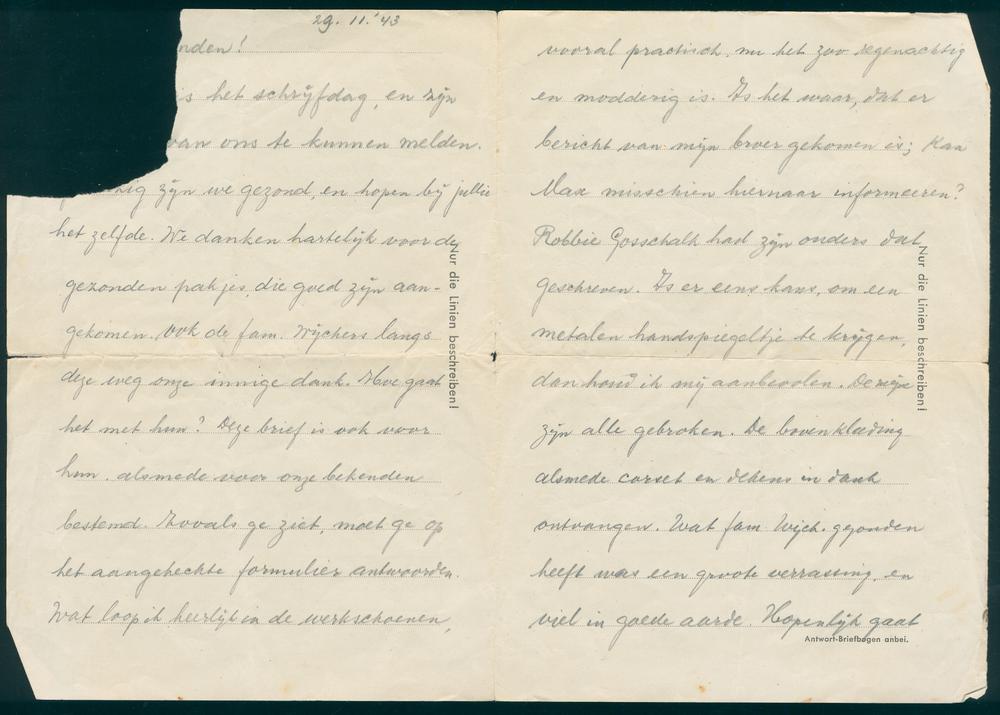 29. 11.'43
nden!
is het schrijfdag, en zijn
van ons te kunnen melden.
zijn we gezond, en hopen bij jullie
het zelfde. We danken hartelijk voor de
gezonden pakjes, die goed zijn aan-
gekomen. Ook de fam. Wijchers langs
deze weg onze innige dank. Hoe gaat
het met hun? Deze brief is ook voor
hun, alsmede voor onze bekenden
bestemd. Zooals ge ziet, moet ge op
het aangehechte formulier antwoorden.
Wat loop ik heerlijk in de werkschoenen,
Nur die Linien beschreiben!
vooral practisch, nu het zoo regenachtig
en modderig is. Is het waar, dat er
bericht van mijn broer gekomen is; Kan
Max misschien hiernaar informeeren?
Robbie Gosschalk had zijn ouders dat
geschreven. Is er eens kans, om een
metalen handspiegeltje te krijgen,
dan houd ik mij aanbevolen. Deze
zijn alle gebroken. De bovenkleeding
alsmede corset en dekens in dank
ontvangen. Wat fam. Wijch. gezonden
heeft was een groote verrassing, en
viel in goede aarde. Hopenlijk gaat
Nur die Linien beschreiben!
Antwort-Briefbogen anbei.